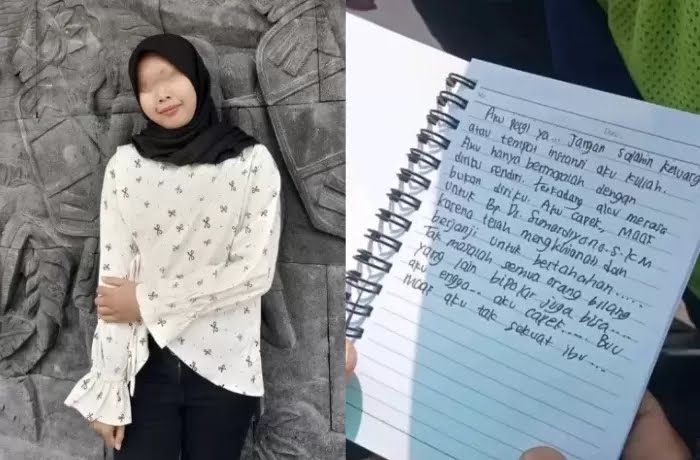 No.
Date:
Aku pergi ya... Jangan Salahin keluarga
atau tempat instansi aku kuliah.
Aku hanya bermasalah dengan
diriku sendiri. terkadang aku merasa
bukan diriku. Aku capek, Maaf
untuk Bp. Ds. Sumardiyono. S.KM
karena telah mengkhianati dan
berjanji untuk bertahan.....
Tak masalah semua orang bilang
yang lain bipolar juga bisa.....
aku engga.... aku capek..... Buu
Maaf aku tak sekuat ibu...